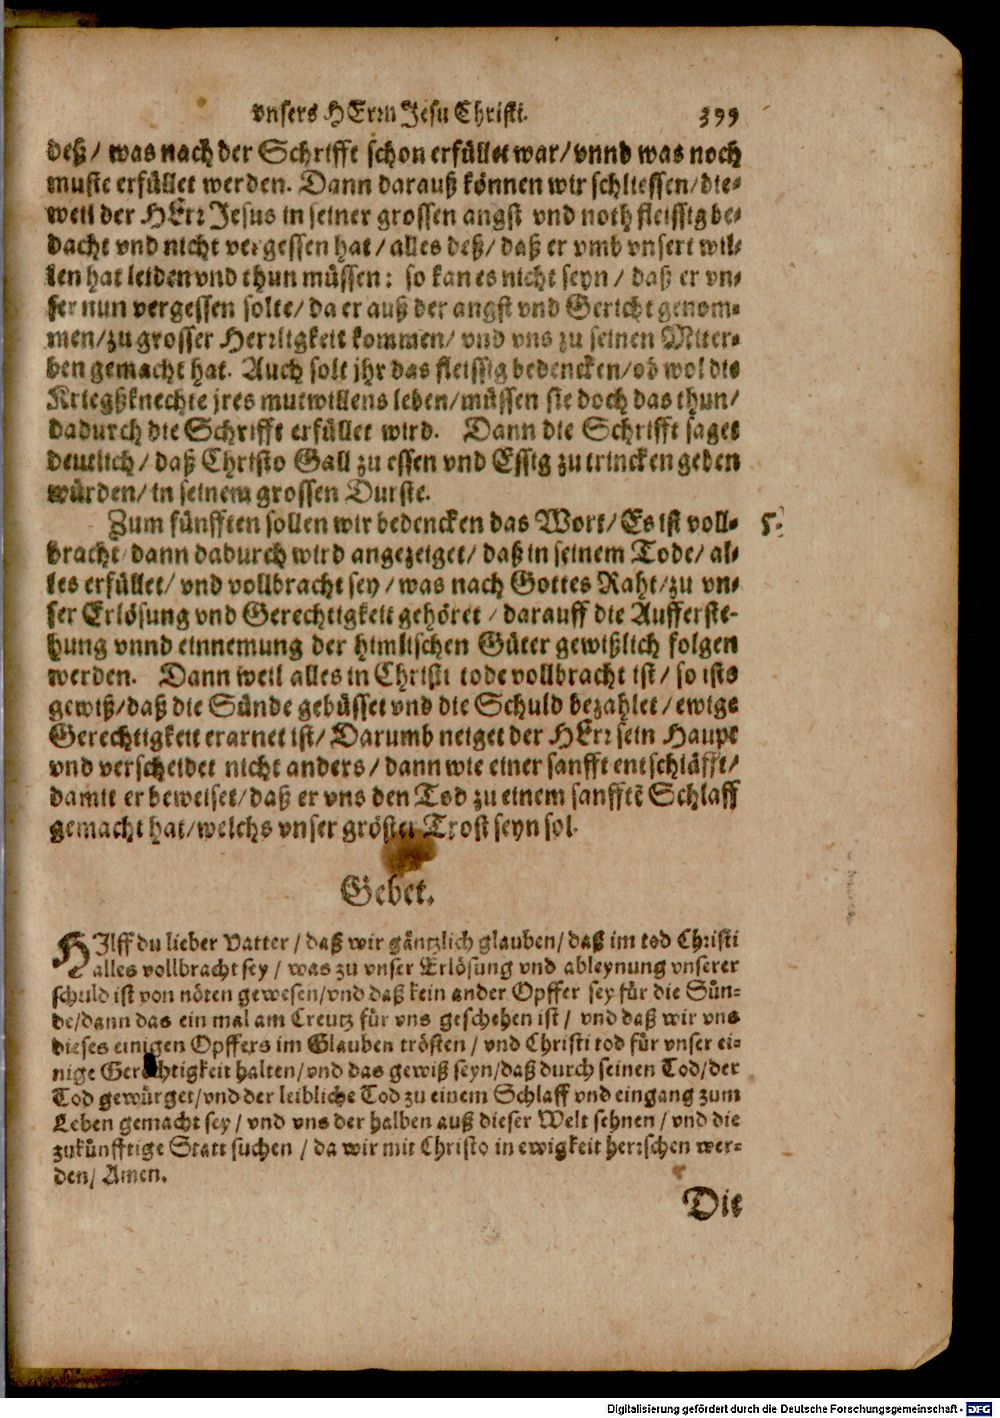 vnsers HErrn Jesu Christi. 399
deß/ was nach der Schrifft schon erfüllet war/ vnnd was noch
muste erfüllet werden. Dann darauß können wir schliessen/ die-
weil der HErr Jesus in seiner grossen angst vnd noth fleissig be-
dacht vnd nicht vergessen hat/ alles deß/ daß er vmb vnsert wil-
len hat leiden vnd thun müssen: so kan es nicht seyn/ daß er vn-
ser nun vergessen solte/ da er auß der angst vnd Gericht genom-
men/ zu grosser Herrligkeit kommen/ vnd vns zu seinen Miter-
ben gemacht hat. Auch solt jhr das fleissig bedencken/ ob wol die
Kriegßknechte jres mutwillens leben/ müssen sie doch das thun/
dadurch die Schrifft erfüllet wird. Dann die Schrifft saget
deutlich/ daß Christo Gall zu essen vnd Essig zu trincken geben
würden/ in seinem grossen Durste.
Zum fünfften sollen wir bedencken das Wort/ Es ist voll- 5.
bracht/ dann dadurch wird angezeiget/ daß in seinem Tode/ al-
les erfüllet/ vnd vollbracht sey/ was nach Gottes Raht/ zu vn-
ser Erlösung vnd Gerechtigkeit gehöret/ darauff die Aufferste-
hung vnnd einnemung der himlischen Güter gewißlich folgen
werden. Dann weil alles in Christi tode vollbracht ist/ so ists
gewiß/ daß die Sünde gebüsset vnd die Schuld bezahlet/ ewige
Gerechtigkeit erarnet ist/ Darumb neiget der HErr sein Haupt
vnd verscheidet nicht anders/ dann wie einer sanfft entschläfft/
damit er beweiset/ daß er vns den Tod zu einem sanfftē Schlaff
gemacht hat/ welchs vnser gröster Trost seyn sol.
Gebet.
HIlff du lieber Vatter/ daß wir gäntzlich glauben/ daß im tod Christi
alles vollbracht sey/ was zu vnser Erlösung vnd ableynung vnserer
schuld ist von nöten gewesen/ vnd daß kein ander Opffer sey für die Sün-
de/ dann das ein mal am Creutz für vns geschehen ist/ vnd daß wir vns
dieses einigen Opffers im Glauben trösten/ vnd Christi tod für vnser ei-
nige Gerechtigkeit halten/ vnd das gewiß seyn/ daß durch seinen Tod/ der
Tod gewürget/ vnd der leibliche Tod zu einem Schlaff vnd eingang zum
Leben gemacht sey/ vnd vns der halben auß dieser Welt sehnen/ vnd die
zukünfftige Statt suchen/ da wir mit Christo in ewigkeit herrschen wer-
den/ Amen.
Die
Digitalisierung gefördert durch die Deutsche Forschungsgemeinschaft - DFG